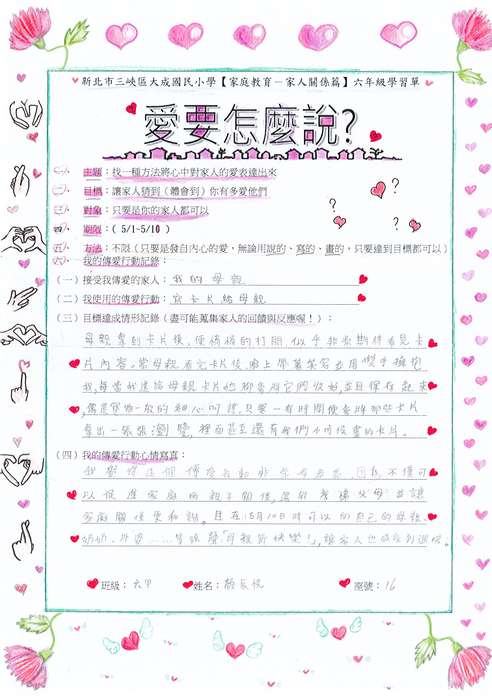 新北市三峽區大成國民小學【家庭教育－家人關係篇】六年級學習單
愛要怎麼說?
一、 主題：找一種方法將心中對家人的愛表達出來
二、 目標：讓家人猜到(體會到)你有多愛他們
三、 對象：只要是你的家人都可以
四、 期限：( 5/1-5/10 )
五、 方法：不限(只要是發自內心的愛、無論用說的、寫的、畫的，只要達到目標都可以)
六、 我的傳愛行動記錄：
(一) 接受我傳愛的家人：我的母親
(二) 我使用的傳愛行動：寫卡片給母親
(三) 目標達成情形記錄(盡可能蒐集家人的回饋與反應喔！)：
母親拿到卡片後，便慢慢的打開，似乎非常期待看見卡
片內容。當母親看完卡片後，臉上帶著笑容並用雙手擁抱
我，每當我送給母親卡片她都會將它們收好，並且保存起來
，像是寶物一般的細心呵護，只要一有時間便會將那些卡片
拿出一張張瀏覽，裡面甚至還有我們小時候畫的卡片。
(四) 我的傳愛行動心情寫真：
我覺得這個傳愛行動非常有意義，因為不僅可
以促進家庭的親子關係，還能孝順父母，並讓
家庭關係更和諧。且在5月10日時可以向自己的母親、
奶奶、外婆……等說聲「母親節快樂!」，讓家人也感受到溫暖。
班級：六甲 姓名： 座號：16